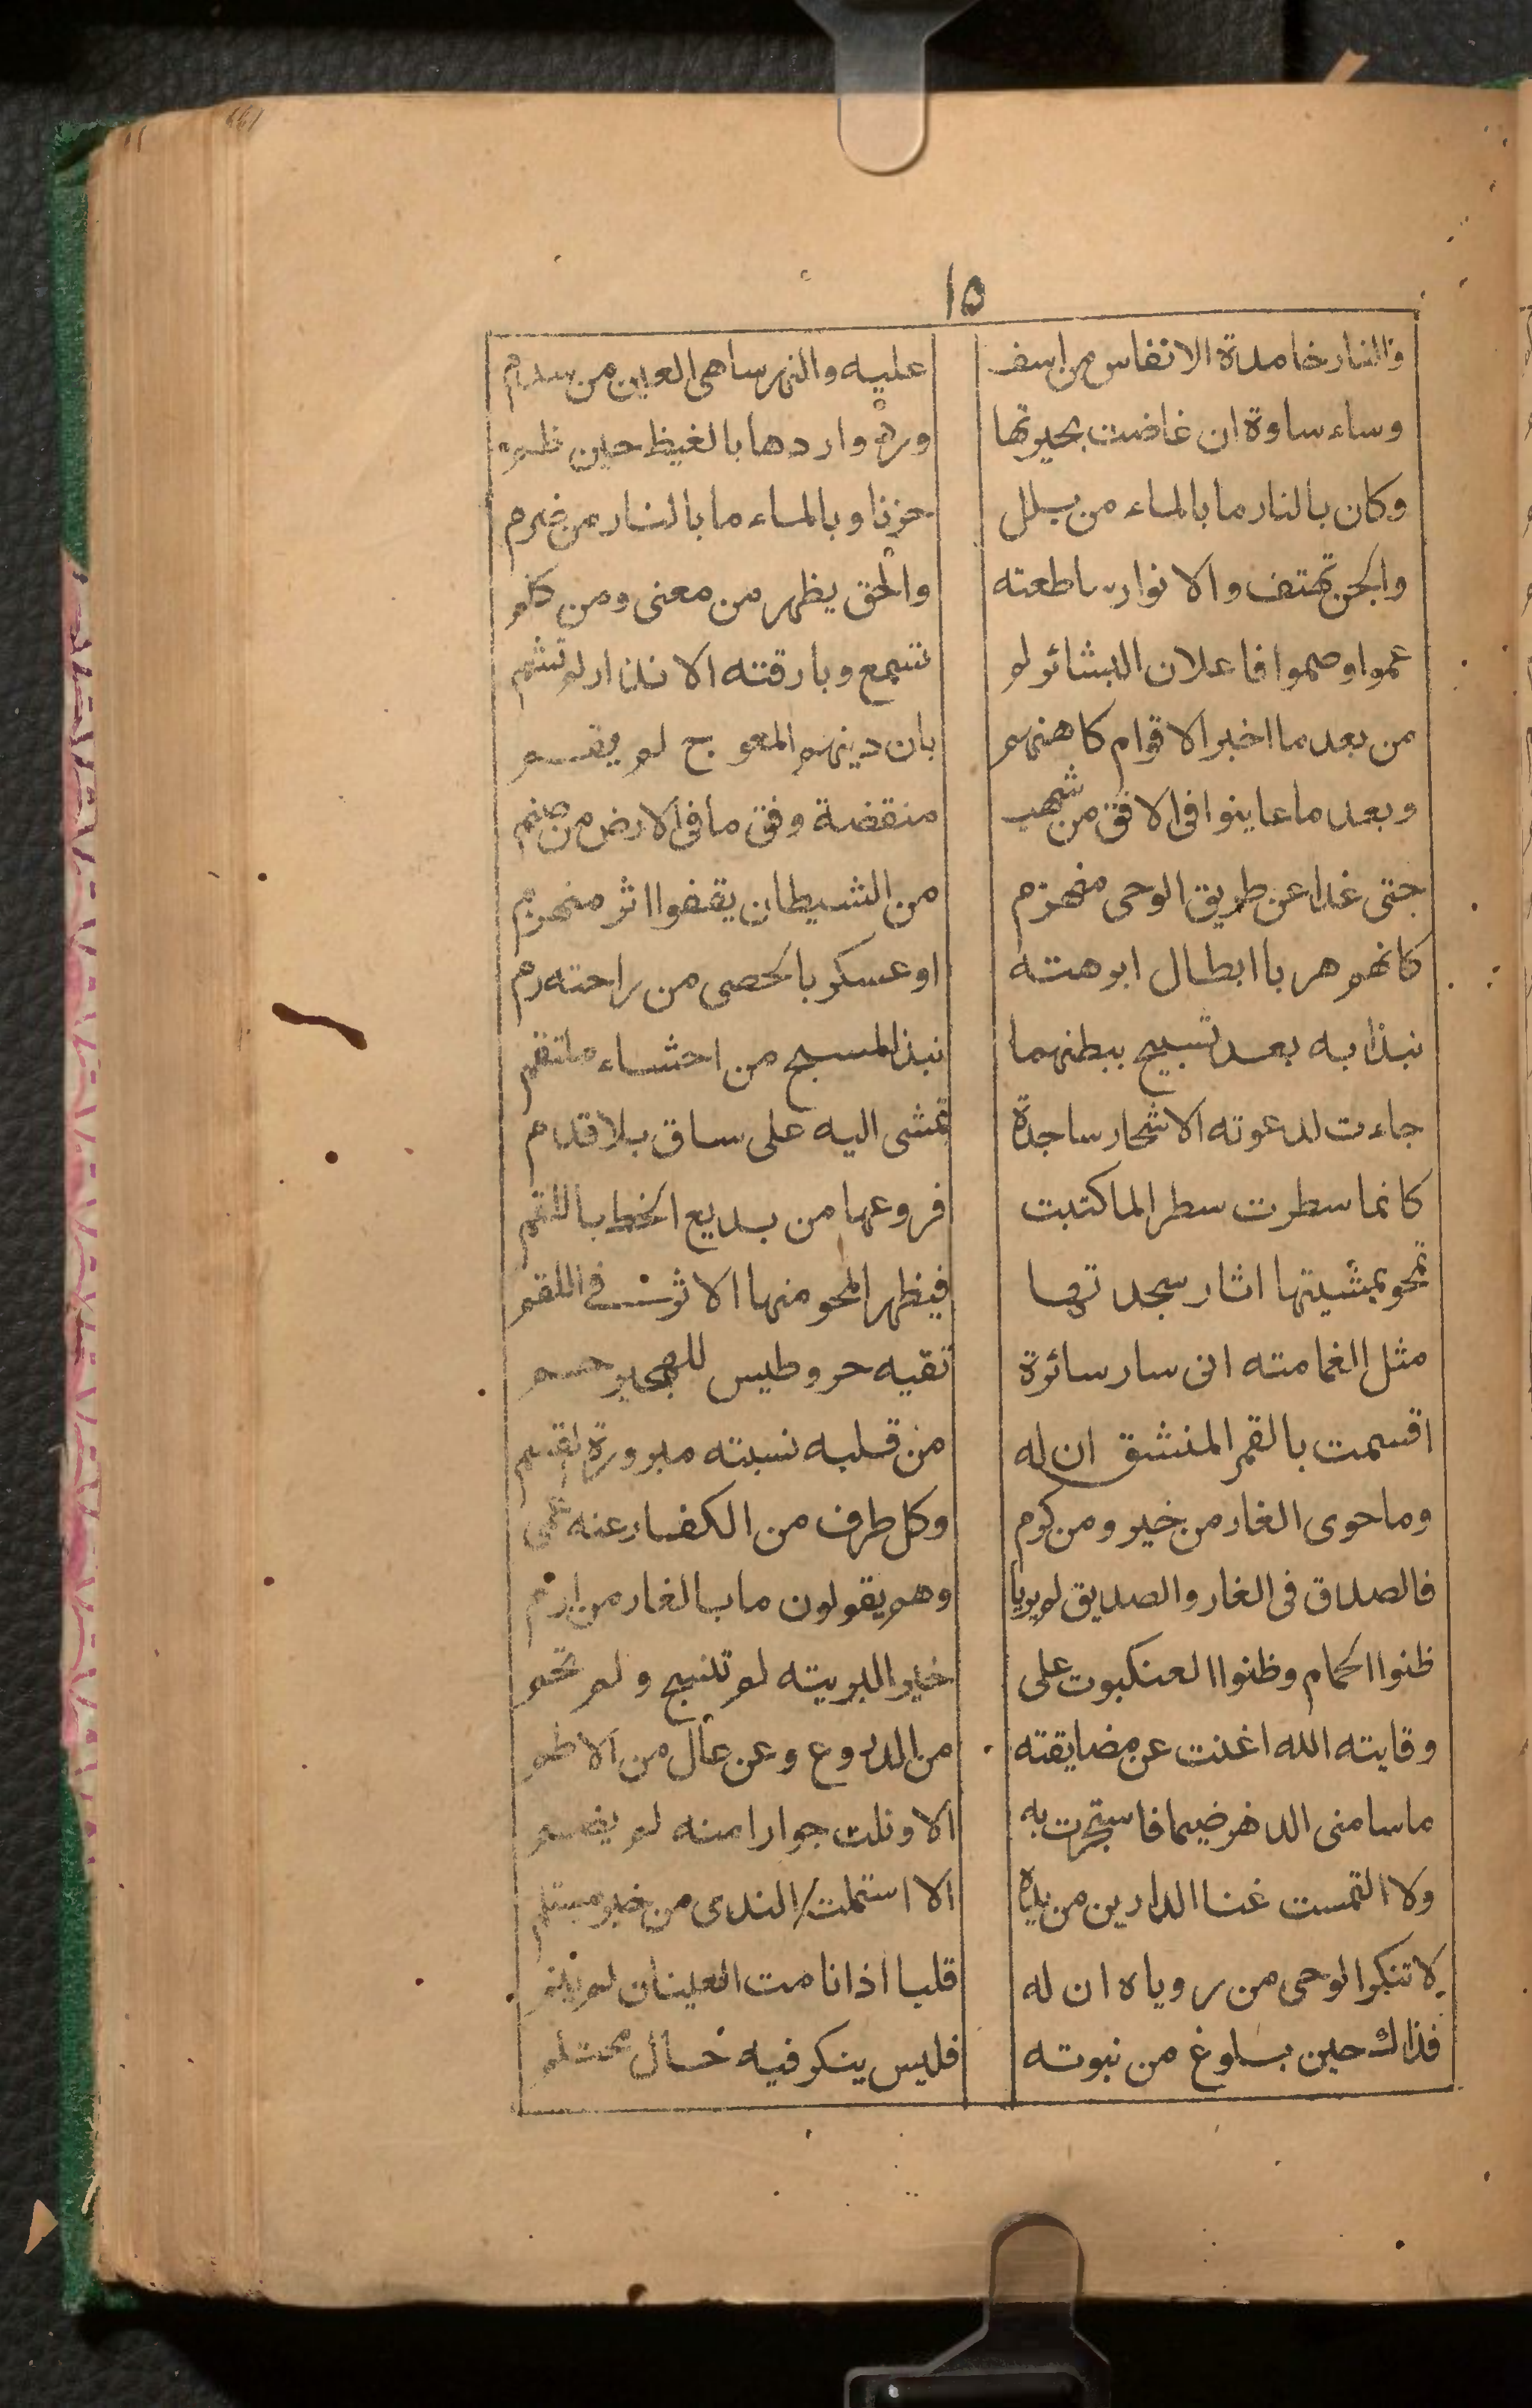 ١٥
والنار خامدة الانفاس من اسف عليه والنهر ساهى العين من سدم
وساء ساوة ان غاضت بحيرتها ورد واردها بالغيظ حين ظم
وكان بالنار ما بالماء من بلل حزنا وبالماء ما بالنار من ضرم
والجن تهتف والانوار ساطعته والحق يظهر من معنى ومن كلم
عموا وصموا فاعلان البشائر لم تسمع وبارقته الانذار لم تشم
من بعد ما اخبر الاقوام كاهنهم بان دينهم المعوج لم يقم
وبعد ما عاينوا فى الافق من شهب منقضة وفق ما فى الارض من صنم
حتى غدا عن طريق الوحى منهزم من الشيطان يقفوا اثر منهزم
كانهم هربا ابطال ابرهته او عسكر بالحصى من راحته رم
نبذا به بعد تسبيح ببطنهما نبذ المسبح من احشاء ملتقم
جاءت لدعوته الاشجار ساجدة تمشى اليه على ساق بلا قدم
كانما سطرت سطرا لما كتبت فروعها من بديع الخط باللقم
تمحو بمشيتها اثار سجدتها فيظهر المحو منها الاثر فى اللقم
مثل الغمامته انى سار سائرة تقيه حر وطيس للهجير حم
اقسمت بالقمر المنشق ان له من قلبه نسبته مبرورة القسم
وما حوى الغار من خير ومن كرم وكل طرف من الكفار عنه عمى
فالصدق فى الغار والصديق لم يريا وهم يقولون ما بالغار من ارم
ظنوا الحمام وظنوا العنكبوت على خير البريته لم تنسج ولم تحم
وقايته الله اغنت عن مضايقته من الدروع وعن عال من الاطم
ما سامنى الدهر ضيما فاستجرت به الا ونلت جوارا منه لم يضم
ولا التمست غنا الدارين من يده الا استلمت الندى من خير مستلم
لا تنكر الوحى من روياه ان له قلبا اذا نامت العينان لم ينم
فذاك حين بلوغ من نبوته فليس ينكر فيه حال محتلم